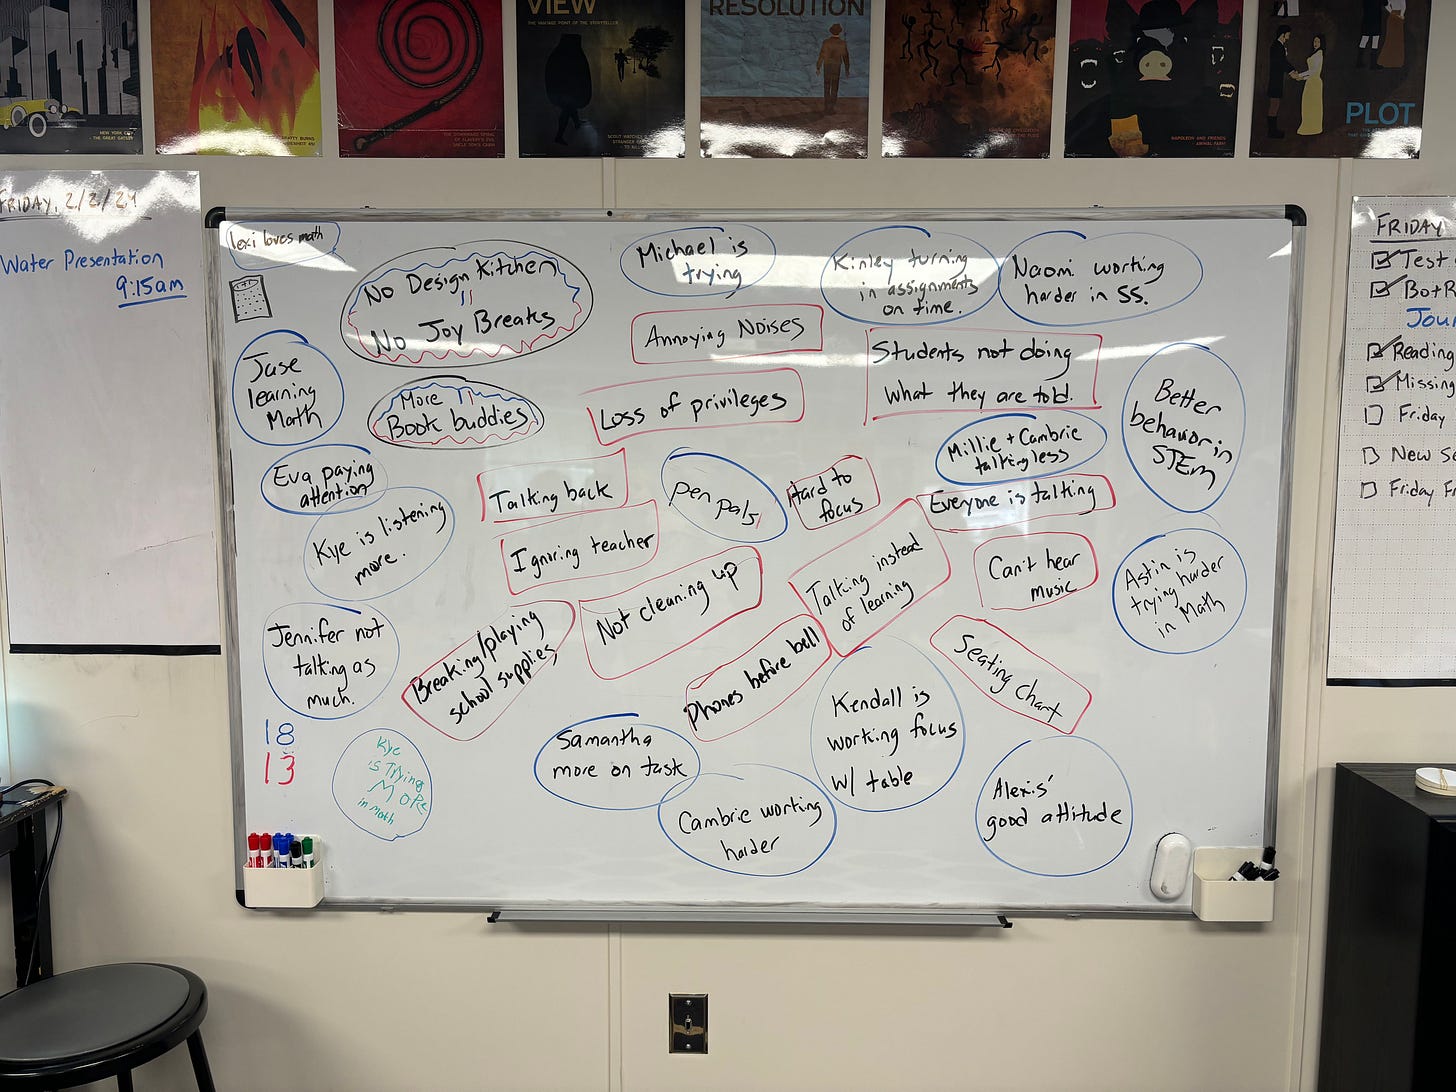 VIEW
THE VANTAGE POINT OF THE STORYTELLER
RESOLUTION
PLOT
NEW YORK CITY
- THE GREAT GATSBY
UNCLE TOM'S CABIN
NAPOLEON AND FRIENDS
- ANIMAL FARM
FRIDAY, 2/2/24
Water Presentation
9:15am
lexi loves math
No Design Kitchen
No Joy Breaks
Michael is
trying
Kinley turning
in assignments
on time.
Naomi working
harder in SS.
Annoying Noises
Students not doing
what they are told.
Jase
learning
Math
More
Book buddies
Loss of privileges
Better
behavior in
STEM
Millie + Cambrie
talking less
Eva paying
attention
Talking back
Pen Pals
Hard to
focus
Everyone is talking
Kye is listening
more.
Ignoring teacher
Talking instead
of learning
Can't hear
music
Astin is
trying harder
in Math
Not cleaning up
Jennifer not
talking as
much.
Breaking/playing
school supplies
Phones before bell
Seating Chart
18
13
Kye
is Trying
MORE
in Math
Samantha
more on task
Kendall is
working focus
w/ table
Cambrie working
harder
Alexis'
good attitude
FRIDAY
Test
Reading
Missing
Friday
New
Friday